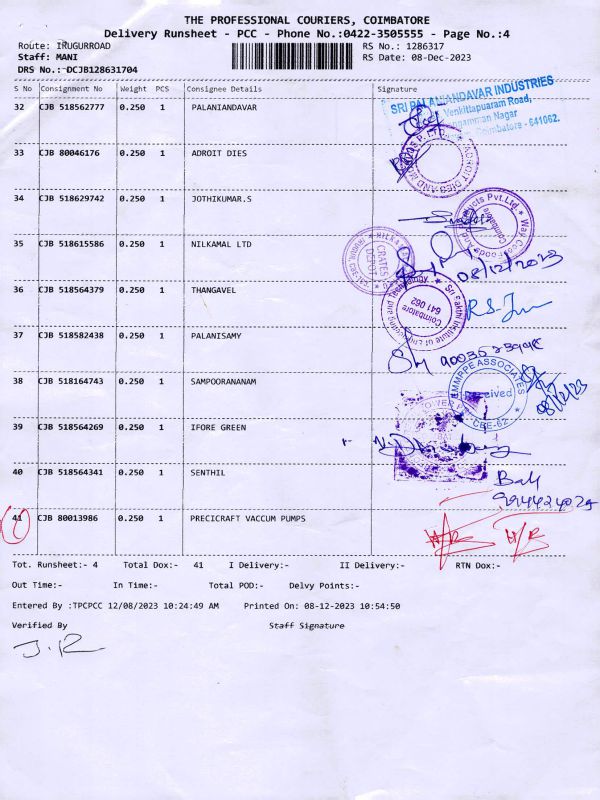 THE PROFESSIONAL COURIERS, COIMBATORE
Delivery Runsheet - PCC - Phone No.:0422-3505555 - Page No.:4
Route: IRUGURROAD RS No.: 1286317
Staff: MANI RS Date: 08-Dec-2023
DRS No.:-DCJB128631704
S No Consignment No Weight PCS Consignee Details Signature
32 CJB 518562777 0.250 1 PALANIANDAVAR
SRI PALANIANDAVAR INDUSTRIES
Venkittapuaram Road,
Nagar
Coimbatore - 641062.
33 CJB 80046176 0.250 1 ADROIT DIES
ADROIT DIES AND
34 CJB 518629742 0.250 1 JOTHIKUMAR.S
Pvt.Ltd.
Coimbatore
35 CJB 518615586 0.250 1 NILKAMAL LTD
CRATES
DEPOT
08/12/2023
36 CJB 518564379 1 THANGAVEL
0.250
Sri Sakthi Institute of Engineering and Technology
Coimbatore
641 062
37 CJB 518582438 0.250 1 PALANISAMY
38 CJB 518164743 0.250 1 SAMPOORANANAM
ASSOCIATES
Received
CBE-62
08/12/23
39 CJB 518564269 0.250 1 IFORE GREEN
40 CJB 518564341 0.250 1 SENTHIL
41 CJB 80013986 0.250 1 PRECICRAFT VACCUM PUMPS
Tot. Runsheet:- 4 Total Dox:- 41 I Delivery:- II Delivery:- RTN Dox:-
Out Time:- In Time:- Total POD:- Delvy Points:-
Entered By :TPCPCC 12/08/2023 10:24:49 AM Printed On: 08-12-2023 10:54:50
Verified By Staff Signature